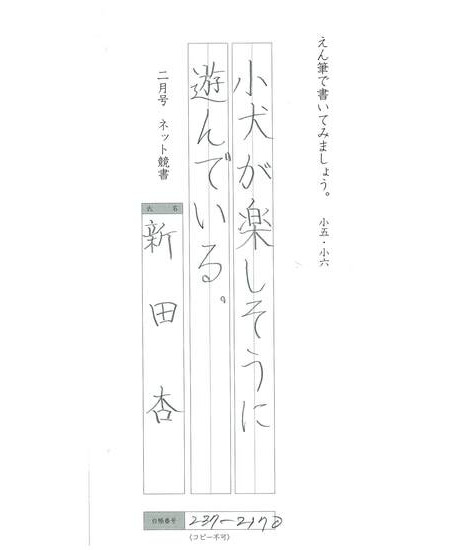 えん筆で書いてみましょう。 小五・小六
小犬が楽しそうに
遊んでいる。
二月号 ネット競書
氏名
新田杏
台帳番号 237-2170
(コピー不可)